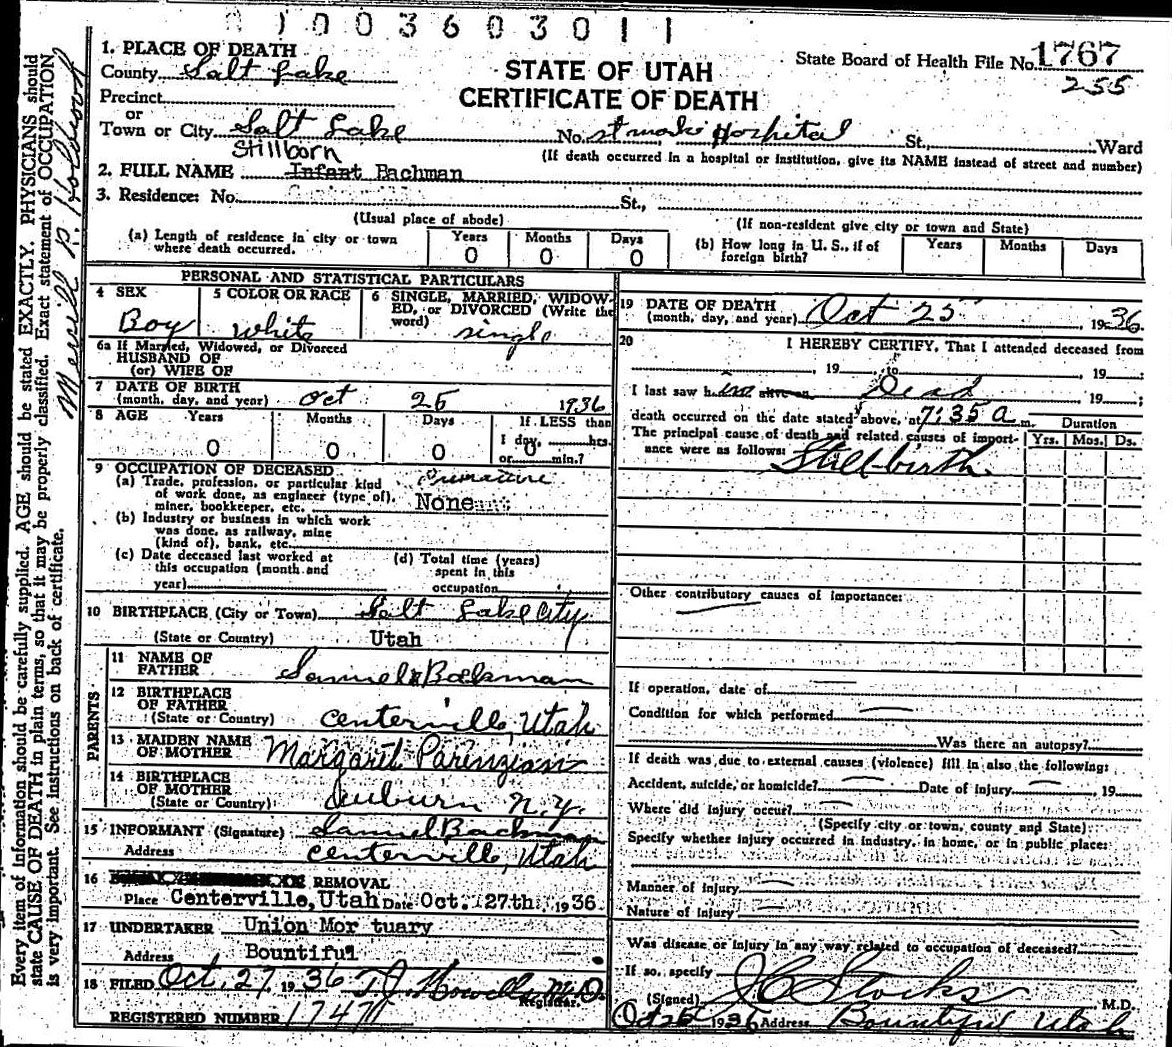 01003603011
1. PLACE OF DEATH
County Salt Lake
State Board of Health File No. 1767
255
STATE OF UTAH
CERTIFICATE OF DEATH
Precinct
or
Town or City Salt Lake No. St Marks Hospital St., Ward
(If death occurred in a hospital or institution, give its NAME instead of street and number)
Stillborn
2. FULL NAME Infant Bachman
3. Residence: No. St.,
(Usual place of abode) (If non-resident give city or town and State)
(a) Length of residence in city or town where death occurred. Years 0 Months 0 Days 0
(b) How long in U. S., if of foreign birth? Years Months Days
PERSONAL AND STATISTICAL PARTICULARS
4 SEX Boy
5 COLOR OR RACE white
6 SINGLE, MARRIED, WIDOWED, or DIVORCED (Write the word) single
6a If Married, Widowed, or Divorced
HUSBAND OF
(or) WIFE OF
7 DATE OF BIRTH
(month, day, and year) Oct 25 1936
8 AGE Years Months Days If LESS than
0 0 0 1 day, 0 hrs.
or min.?
9 OCCUPATION OF DECEASED Premature
(a) Trade, profession, or particular kind
of work done, as engineer (type of),
miner, bookkeeper, etc. None
(b) Industry or business in which work
was done, as railway, mine
(kind of), bank, etc.
(c) Date deceased last worked at
this occupation (month and
year)
(d) Total time (years)
spent in this
occupation
10 BIRTHPLACE (City or Town) Salt Lake City
(State or Country) Utah
PARENTS
11 NAME OF
FATHER Samuel Bachman
12 BIRTHPLACE
OF FATHER
(State or Country) Centerville, Utah
13 MAIDEN NAME
OF MOTHER Margaret
14 BIRTHPLACE
OF MOTHER
(State or Country) Auburn N.Y.
15 INFORMANT (Signature) Samuel Bachman
Address Centerville, Utah
16 REMOVAL
Place Centerville, Utah Date Oct. 27th 1936
17 UNDERTAKER Union Mor tuary
Address Bountiful
18 FILED Oct. 27, 1936 T.J. Howells M.D.
Registrar.
REGISTERED NUMBER 1747
19 DATE OF DEATH
(month, day, and year) Oct 25, 1936.
20 I HEREBY CERTIFY, That I attended deceased from
, 19 , to , 19 ;
I last saw him alive on Dead 19 ;
death occurred on the date stated above, at 7:35 a m.
The principal cause of death and related causes of importance were as follows: Still-birth.
Duration
Yrs. Mos. Ds.
Other contributory causes of importance:
If operation, date of
Condition for which performed
Was there an autopsy?
If death was due to external causes (violence) fill in also the following:
Accident, suicide, or homicide? Date of injury , 19
Where did injury occur?
(Specify city or town, county and State)
Specify whether injury occurred in industry, in home, or in public place:
Manner of Injury
Nature of Injury
Was disease or injury in any way related to occupation of deceased?
If so, specify
(Signed) J C Stocks M.D.
Oct 26 1936 Address Bountiful Utah
Every item of information should be carefully supplied. AGE should be stated EXACTLY. PHYSICIANS should
state CAUSE OF DEATH in plain terms, so that it may be properly classified. Exact statement of OCCUPATION
is very important. See instructions on back of certificate.
Merrill R. Holbrook